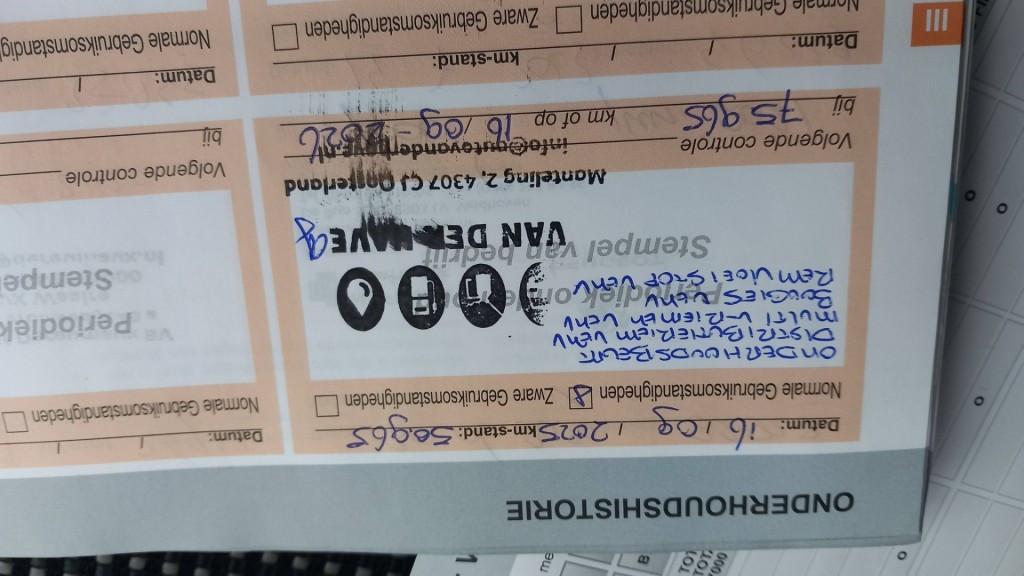 ONDERHOUDSHISTORIE
Datum: 16 / 09 / 2025 km-stand: 50965
Normale Gebruiksomstandigheden Zware Gebruiksomstandigheden
ONDERHOUDSBEURT
DISTRIBUTIERIEM VERV
MULTI V-RIEMEN VERV
BOUGIES VERV
REMVLOEISTOF VERV
Stempel van bedrijf
VAN DER HAVE
Manteling 2, 4307 CJ Oosterland
Volgende controle
bij 75965 km of op 16 / 09 2026
Datum: / / km-stand:
Normale Gebruiksomstandigheden Zware Gebruiksomstandigheden
III
Datum: / /
Normale Gebruiksomstandigheden
Periodiek
Stempel
Volgende controle
bij
Datum: /
Normale Gebruiksomstandig